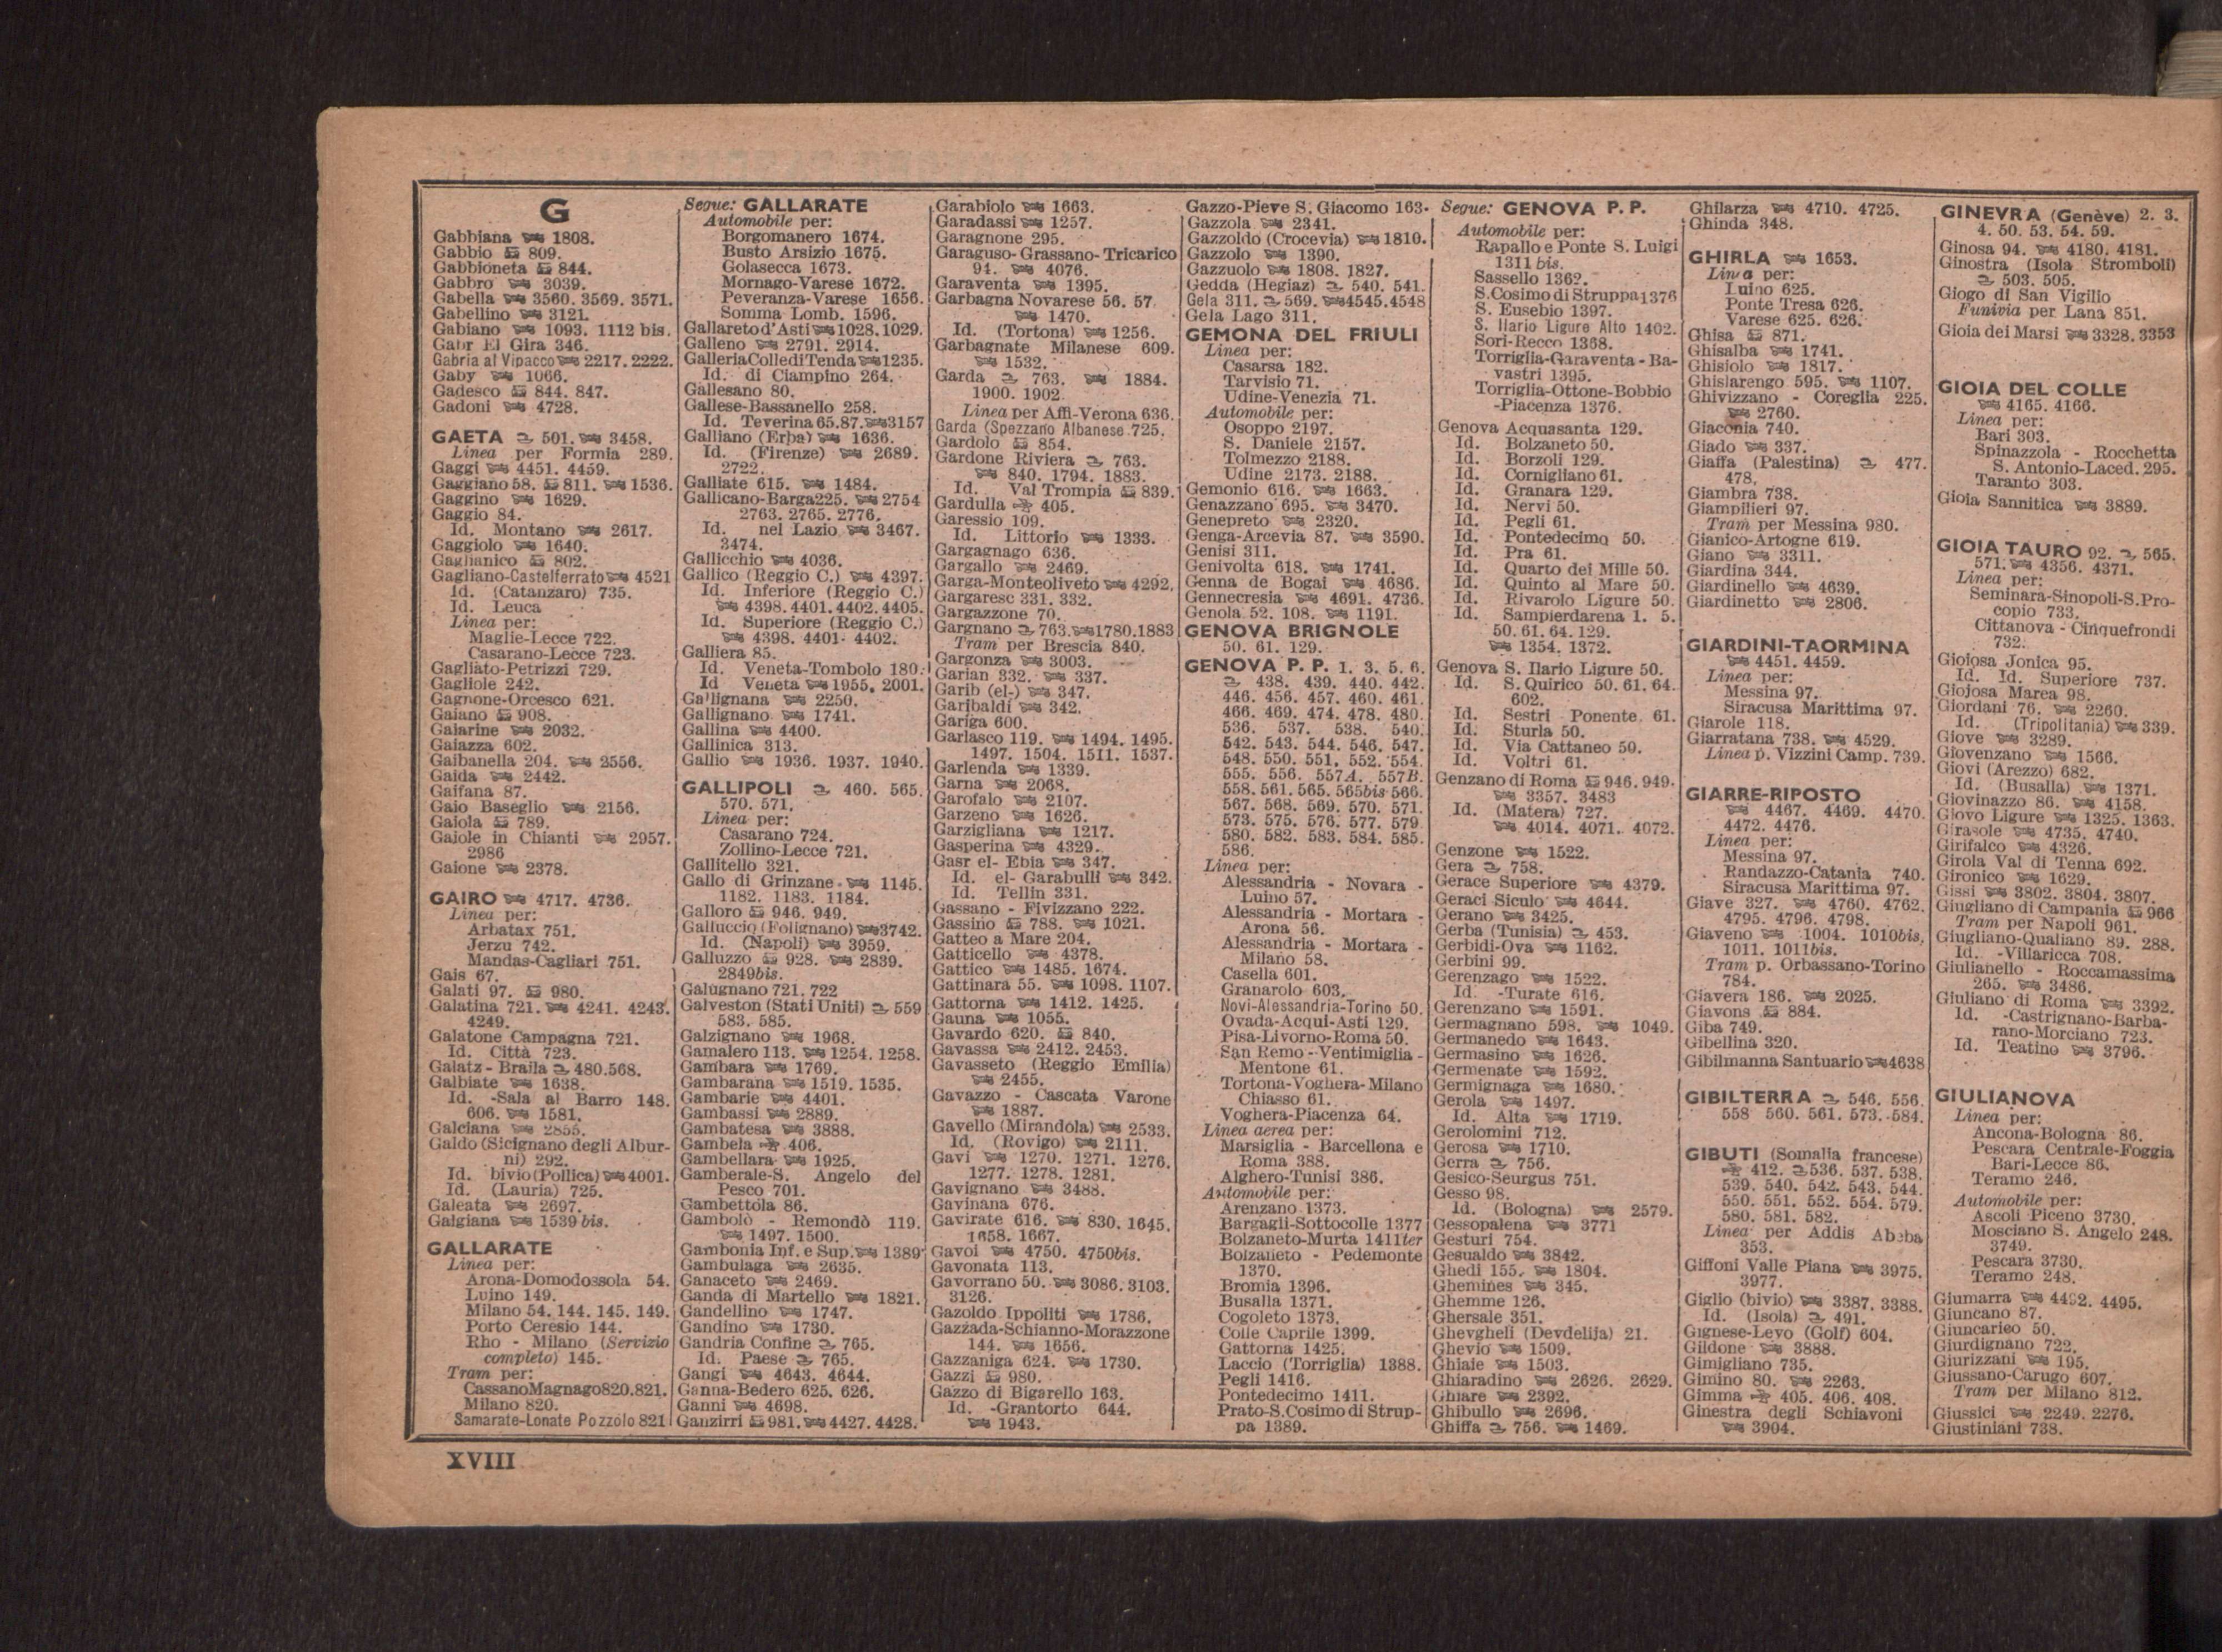 G
Gabbiana 1808.
Gabbio 809.
Gabbioneta 844.
Gabbro 3039.
Gabella 3560. 3569. 3571.
Gabellino 3121.
Gabiano 1093. 1112 bis.
Gabr El Gira 346.
Gabria al Vipacco 2217. 2222.
Gaby 1066.
Gadesco 844. 847.
Gadoni 4728.
GAETA 501. 3458.
Linea per Formia 289.
Gaggi 4451. 4459.
Gaggiano 58. 811. 1536.
Gaggino 1629.
Gaggio 84.
Id. Montano 2617.
Gaggiolo 1640.
Gaglianico 802.
Gagliano-Castelferrato 4521
Id. (Catanzaro) 735.
Id. Leuca
Linea per:
Maglie-Lecce 722.
Casarano-Lecce 723.
Gagliato-Petrizzi 729.
Gagliole 242.
Gagnone-Orcesco 621.
Gaiano 908.
Gaiarine 2032.
Gaiazza 602.
Gaibanella 204. 2556.
Gaida 2442.
Gaifana 87.
Gaio Baseglio 2156.
Gaiola 789.
Gaiole in Chianti 2957.
2986
Gaione 2378.
GAIRO 4717. 4736.
Linea per:
Arbatax 751.
Jerzu 742.
Mandas-Cagliari 751.
Gais 67.
Galati 97. 980.
Galatina 721. 4241. 4243.
4249.
Galatone Campagna 721.
Id. Città 723.
Galatz - Braila 480.568.
Galbiate 1638.
Id. -Sala al Barro 148.
606. 1581.
Galciana 2855.
Galdo (Sicignano degli Albur-
ni) 292.
Id. bivio (Pollica) 4001.
Id. (Lauria) 725.
Galeata 2697.
Galgiana 1539 bis.
GALLARATE
Linea per:
Arona-Domodossola 54.
Luino 149.
Milano 54. 144. 145. 149.
Porto Ceresio 144.
Rho - Milano (Servizio
completo) 145.
Tram per:
Cassano Magnago 820.821.
Milano 820.
Samarate-Lonate Pozzolo 821
Segue: GALLARATE
Automobile per:
Borgomanero 1674.
Busto Arsizio 1675.
Golasecca 1673.
Mornago-Varese 1672.
Peveranza-Varese 1656.
Somma Lomb. 1596.
Gallareto d'Asti 1028.1029.
Galleno 2791. 2914.
Galleria Colle di Tenda 1235.
Id. di Ciampino 264.
Gallesano 80.
Gallese-Bassanello 258.
Id. Teverina 65.87. 3157
Galliano (Erba) 1636.
Id. (Firenze) 2689.
2722.
Galliate 615. 1484.
Gallicano-Barga 225. 2754
2763. 2765. 2776.
Id. nel Lazio 3467.
3474.
Gallicchio 4036.
Gallico (Reggio C.) 4397.
Id. Inferiore (Reggio C.)
4398. 4401. 4402. 4405.
Id. Superiore (Reggio C.)
4398. 4401. 4402.
Galliera 85.
Id. Veneta-Tombolo 180.
Id Veneta 1955. 2001.
Gallignana 2250.
Gallignano 1741.
Gallina 4400.
Gallinica 313.
Gallio 1936. 1937. 1940.
GALLIPOLI 460. 565.
570. 571.
Linea per:
Casarano 724.
Zollino-Lecce 721.
Gallitello 321.
Gallo di Grinzane 1145.
1182. 1183. 1184.
Galloro 946. 949.
Galluccio (Folignano) 3742.
Id. (Napoli) 3959.
Galluzzo 928. 2839.
2849bis.
Galugnano 721. 722
Galveston (Stati Uniti) 559
583. 585.
Galzignano 1968.
Gamalero 113. 1254. 1258.
Gambara 1769.
Gambarana 1519. 1535.
Gambarie 4401.
Gambassi 2889.
Gambatesa 3888.
Gambela 406.
Gambellara 1925.
Gamberale-S. Angelo del
Pesco 701.
Gambettola 86.
Gambolò - Remondò 119.
1497. 1500.
Gambonia Inf. e Sup. 1389
Gambulaga 2635.
Ganaceto 2469.
Ganda di Martello 1821.
Gandellino 1747.
Gandino 1730.
Gandria Confine 765.
Id. Paese 765.
Gangi 4643. 4644.
Ganna-Bedero 625. 626.
Ganni 4698.
Ganzirri 981. 4427. 4428.
Garabiolo 1663.
Garadassi 1257.
Garagnone 295.
Garaguso-Grassano-Tricarico
94. 4076.
Garaventa 1395.
Garbagna Novarese 56. 57.
1470.
Id. (Tortona) 1256.
Garbagnate Milanese 609.
1532.
Garda 763. 1884.
1900. 1902.
Linea per Affi-Verona 636.
Garda (Spezzano Albanese 725.
Gardolo 854.
Gardone Riviera 763.
840. 1794. 1883.
Id. Val Trompia 839.
Gardulla 405.
Garessio 109.
Id. Littorio 1333.
Gargagnago 636.
Gargallo 2469.
Garga-Monteoliveto 4292.
Gargaresc 331. 332.
Gargazzone 70.
Gargnano 763. 1780.1883
Tram per Brescia 840.
Gargonza 3003.
Garian 332. 337.
Garib (el-) 347.
Garibaldi 342.
Gariga 600.
Garlasco 119. 1494. 1495.
1497. 1504. 1511. 1537.
Garlenda 1339.
Garna 2068.
Garofalo 2107.
Garzeno 1626.
Garzigliana 1217.
Gasperina 4329.
Gasr el- Ebia 347.
Id. el- Garabulli 342.
Id. Tellin 331.
Gassano - Fivizzano 222.
Gassino 788. 1021.
Gatteo a Mare 204.
Gatticello 4378.
Gattico 1485. 1674.
Gattinara 55. 1098. 1107.
Gattorna 1412. 1425.
Gauna 1055.
Gavardo 620. 840.
Gavassa 2412. 2453.
Gavasseto (Reggio Emilia)
2455.
Gavazzo - Cascata Varone
1887.
Gavello (Mirandola) 2533.
Id. (Rovigo) 2111.
Gavi 1270. 1271. 1276.
1277. 1278. 1281.
Gavignano 3488.
Gavinana 676.
Gavirate 616. 830. 1645.
1658. 1667.
Gavoi 4750. 4750bis.
Gavonata 113.
Gavorrano 50. 3086. 3103.
3126.
Gazoldo Ippoliti 1786.
Gazzada-Schianno-Morazzone
144. 1656.
Gazzaniga 624. 1730.
Gazzi 980.
Gazzo di Bigarello 163.
Id. -Grantorto 644.
1943.
Gazzo-Pieve S. Giacomo 163.
Gazzola 2341.
Gazzoldo (Crocevia) 1810.
Gazzolo 1390.
Gazzuolo 1808. 1827.
Gedda (Hegiaz) 540. 541.
Gela 311. 569. 4545.4548
Gela Lago 311.
GEMONA DEL FRIULI
Linea per:
Casarsa 182.
Tarvisio 71.
Udine-Venezia 71.
Automobile per:
Osoppo 2197.
S. Daniele 2157.
Tolmezzo 2188.
Udine 2173. 2188.
Gemonio 616. 1663.
Genazzano 695. 3470.
Genepreto 2320.
Genga-Arcevia 87. 3590.
Genisi 311.
Genivolta 618. 1741.
Genna de Bogai 4686.
Gennecresia 4691. 4736.
Genola 52. 108. 1191.
GENOVA BRIGNOLE
50. 61. 129.
GENOVA P. P. 1. 3. 5. 6.
438. 439. 440. 442.
446. 456. 457. 460. 461.
466. 469. 474. 478. 480.
536. 537. 538. 540.
542. 543. 544. 546. 547.
548. 550. 551. 552. 554.
555. 556. 557A. 557B.
558. 561. 565. 565bis 566.
567. 568. 569. 570. 571.
573. 575. 576. 577. 579
580. 582. 583. 584. 585.
586.
Linea per:
Alessandria - Novara -
Luino 57.
Alessandria - Mortara -
Arona 56.
Alessandria - Mortara -
Milano 58.
Casella 601.
Granarolo 603.
Novi-Alessandria-Torino 50.
Ovada-Acqui-Asti 129.
Pisa-Livorno-Roma 50.
San Remo - Ventimiglia -
Mentone 61.
Tortona-Voghera-Milano
Chiasso 61.
Voghera-Piacenza 64.
Linea aerea per:
Marsiglia - Barcellona e
Roma 388.
Alghero-Tunisi 386.
Automobile per:
Arenzano 1373.
Bargagli-Sottocolle 1377
Bolzaneto-Murta 1411ter
Bolzaneto - Pedemonte
1370.
Bromia 1396.
Busalla 1371.
Cogoleto 1373.
Colle Caprile 1399.
Gattorna 1425.
Laccio (Torriglia) 1388.
Pegli 1416.
Pontedecimo 1411.
Prato-S.Cosimo di Strup-
pa 1389.
Segue: GENOVA P. P.
Automobile per:
Rapallo e Ponte S. Luigi
1311 bis.
Sassello 1362.
S.Cosimo di Struppa 1376
S. Eusebio 1397.
S. Ilario Ligure Alto 1402.
Sori-Recco 1368.
Torriglia-Garaventa - Ba-
vastri 1395.
Torriglia-Ottone-Bobbio
-Piacenza 1376.
Genova Acquasanta 129.
Id. Bolzaneto 50.
Id. Borzoli 129.
Id. Cornigliano 61.
Id. Granara 129.
Id. Nervi 50.
Id. Pegli 61.
Id. Pontedecimo 50.
Id. Pra 61.
Id. Quarto dei Mille 50.
Id. Quinto al Mare 50.
Id. Rivarolo Ligure 50.
Id. Sampierdarena 1. 5.
50. 61. 64. 129.
1354. 1372.
Genova S. Ilario Ligure 50.
Id. S. Quirico 50. 61. 64.
602.
Id. Sestri Ponente 61.
Id. Sturla 50.
Id. Via Cattaneo 50.
Id. Voltri 61.
Genzano di Roma 946.949.
3357. 3483
Id. (Matera) 727.
4014. 4071. 4072.
Genzone 1522.
Gera 758.
Gerace Superiore 4379.
Geraci Siculo 4644.
Gerano 3425.
Gerba (Tunisia) 453.
Gerbidi-Ova 1162.
Gerbini 99.
Gerenzago 1522.
Id. -Turate 616.
Gerenzano 1591.
Germagnano 598. 1049.
Germanedo 1643.
Germasino 1626.
Germenate 1592.
Germignaga 1680.
Gerola 1497.
Id. Alta 1719.
Gerolomini 712.
Gerosa 1710.
Gerra 756.
Gesico-Seurgus 751.
Gesso 98.
Id. (Bologna) 2579.
Gessopalena 3771
Gesturi 754.
Gesualdo 3842.
Ghedi 155. 1804.
Ghemines 345.
Ghemme 126.
Ghersale 351.
Ghevgheli (Devdelija) 21.
Ghevio 1509.
Ghiaie 1503.
Ghiaradino 2626. 2629.
Ghiare 2392.
Ghibullo 2696.
Ghiffa 756. 1469.
Ghilarza 4710. 4725.
Ghinda 348.
GHIRLA 1653.
Linea per:
Luino 625.
Ponte Tresa 626.
Varese 625. 626.
Ghisa 871.
Ghisalba 1741.
Ghisiolo 1817.
Ghislarengo 595. 1107.
Ghivizzano - Coreglia 225.
2760.
Giaconia 740.
Giado 337.
Giaffa (Palestina) 477.
478.
Giambra 738.
Giampilieri 97.
Tram per Messina 980.
Gianico-Artogne 619.
Giano 3311.
Giardina 344.
Giardinello 4639.
Giardinetto 2806.
GIARDINI-TAORMINA
4451. 4459.
Linea per:
Messina 97.
Siracusa Marittima 97.
Giarole 118.
Giarratana 738. 4529.
Linea p. Vizzini Camp. 739.
GIARRE-RIPOSTO
4467. 4469. 4470.
4472. 4476.
Linea per:
Messina 97.
Randazzo-Catania 740.
Siracusa Marittima 97.
Giave 327. 4760. 4762.
4795. 4796. 4798.
Giaveno 1004. 1010bis.
1011. 1011bis.
Tram p. Orbassano-Torino
784.
Giavera 186. 2025.
Giavons 884.
Giba 749.
Gibellina 320.
Gibilmanna Santuario 4638
GIBILTERRA 546. 556.
558 560. 561. 573. 584.
GIBUTI (Somalia francese)
412. 536. 537. 538.
539. 540. 542. 543. 544.
550. 551. 552. 554. 579.
580. 581. 582.
Linea per Addis Abeba
353.
Giffoni Valle Piana 3975.
3977.
Giglio (bivio) 3387. 3388.
Id. (Isola) 491.
Gignese-Levo (Golf) 604.
Gildone 3888.
Gimigliano 735.
Gimino 80. 2263.
Gimma 405. 406. 408.
Ginestra degli Schiavoni
3904.
GINEVRA (Genève) 2. 3.
4. 50. 53. 54. 59.
Ginosa 94. 4180. 4181.
Ginostra (Isola Stromboli)
503. 505.
Giogo di San Vigilio
Funivia per Lana 851.
Gioia dei Marsi 3328. 3353
GIOIA DEL COLLE
4165. 4166.
Linea per:
Bari 303.
Spinazzola - Rocchetta
S. Antonio-Laced. 295.
Taranto 303.
Gioia Sannitica 3889.
GIOIA TAURO 92. 565.
571. 4356. 4371.
Linea per:
Seminara-Sinopoli-S.Pro-
copio 733.
Cittanova - Cinquefrondi
732.
Gioiosa Jonica 95.
Id. Id. Superiore 737.
Giojosa Marea 98.
Giordani 76. 2260.
Id. (Tripolitania) 339.
Giove 3289.
Giovenzano 1566.
Giovi (Arezzo) 682.
Id. (Busalla) 1371.
Giovinazzo 86. 4158.
Giovo Ligure 1325. 1363.
Girasole 4735. 4740.
Girifalco 4326.
Girola Val di Tenna 692.
Gironico 1629.
Gissi 3802. 3804. 3807.
Giugliano di Campania 966
Tram per Napoli 961.
Giugliano-Qualiano 89. 288.
Id. -Villaricca 708.
Giulianello - Roccamassima
265. 3486.
Giuliano di Roma 3392.
Id. -Castrignano-Barba-
rano-Morciano 723.
Id. Teatino 3796.
GIULIANOVA
Linea per:
Ancona-Bologna 86.
Pescara Centrale-Foggia
Bari-Lecce 86.
Teramo 246.
Automobile per:
Ascoli Piceno 3730.
Mosciano S. Angelo 248.
3749.
Pescara 3730.
Teramo 248.
Giumarra 4492. 4495.
Giuncano 87.
Giuncarico 50.
Giurdignano 722.
Giurizzani 195.
Giussano-Carugo 607.
Tram per Milano 812.
Giussici 2249. 2276.
Giustiniani 738.
XVIII